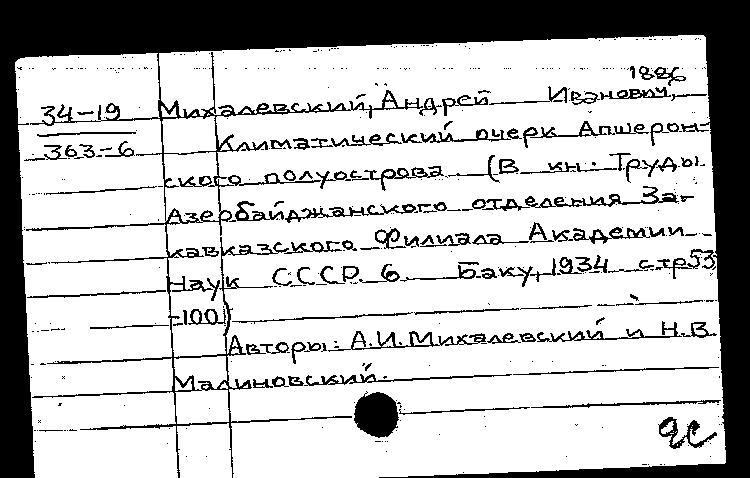 1886
34-19 Михалевский, Андрей Иванович,
363-6 Климатический очерк Апшерон-
ского полуострова. (В кн: Труды
Азербайджанского отделения За-
кавказского Филиала Академии
Наук СССР. 6 Баку, 1934 стр 53
-100)
Авторы: А.И.Михалевский и Н.В.
Малиновский.